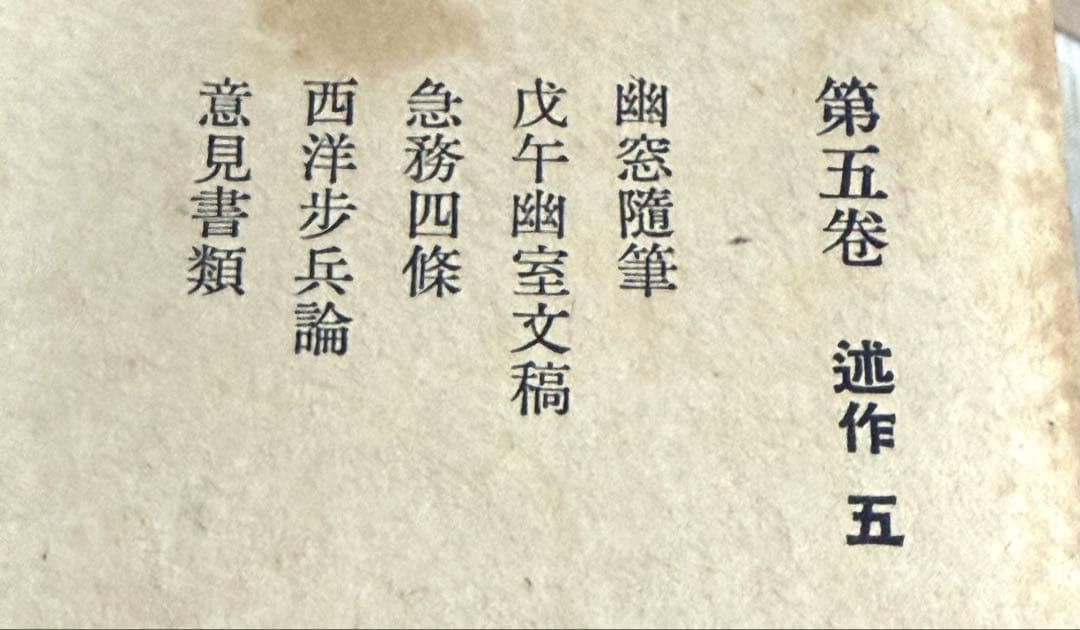 第五卷 述作 五
幽窓隨筆
戊午幽室文稿
急務四條
西洋步兵論
意見書類